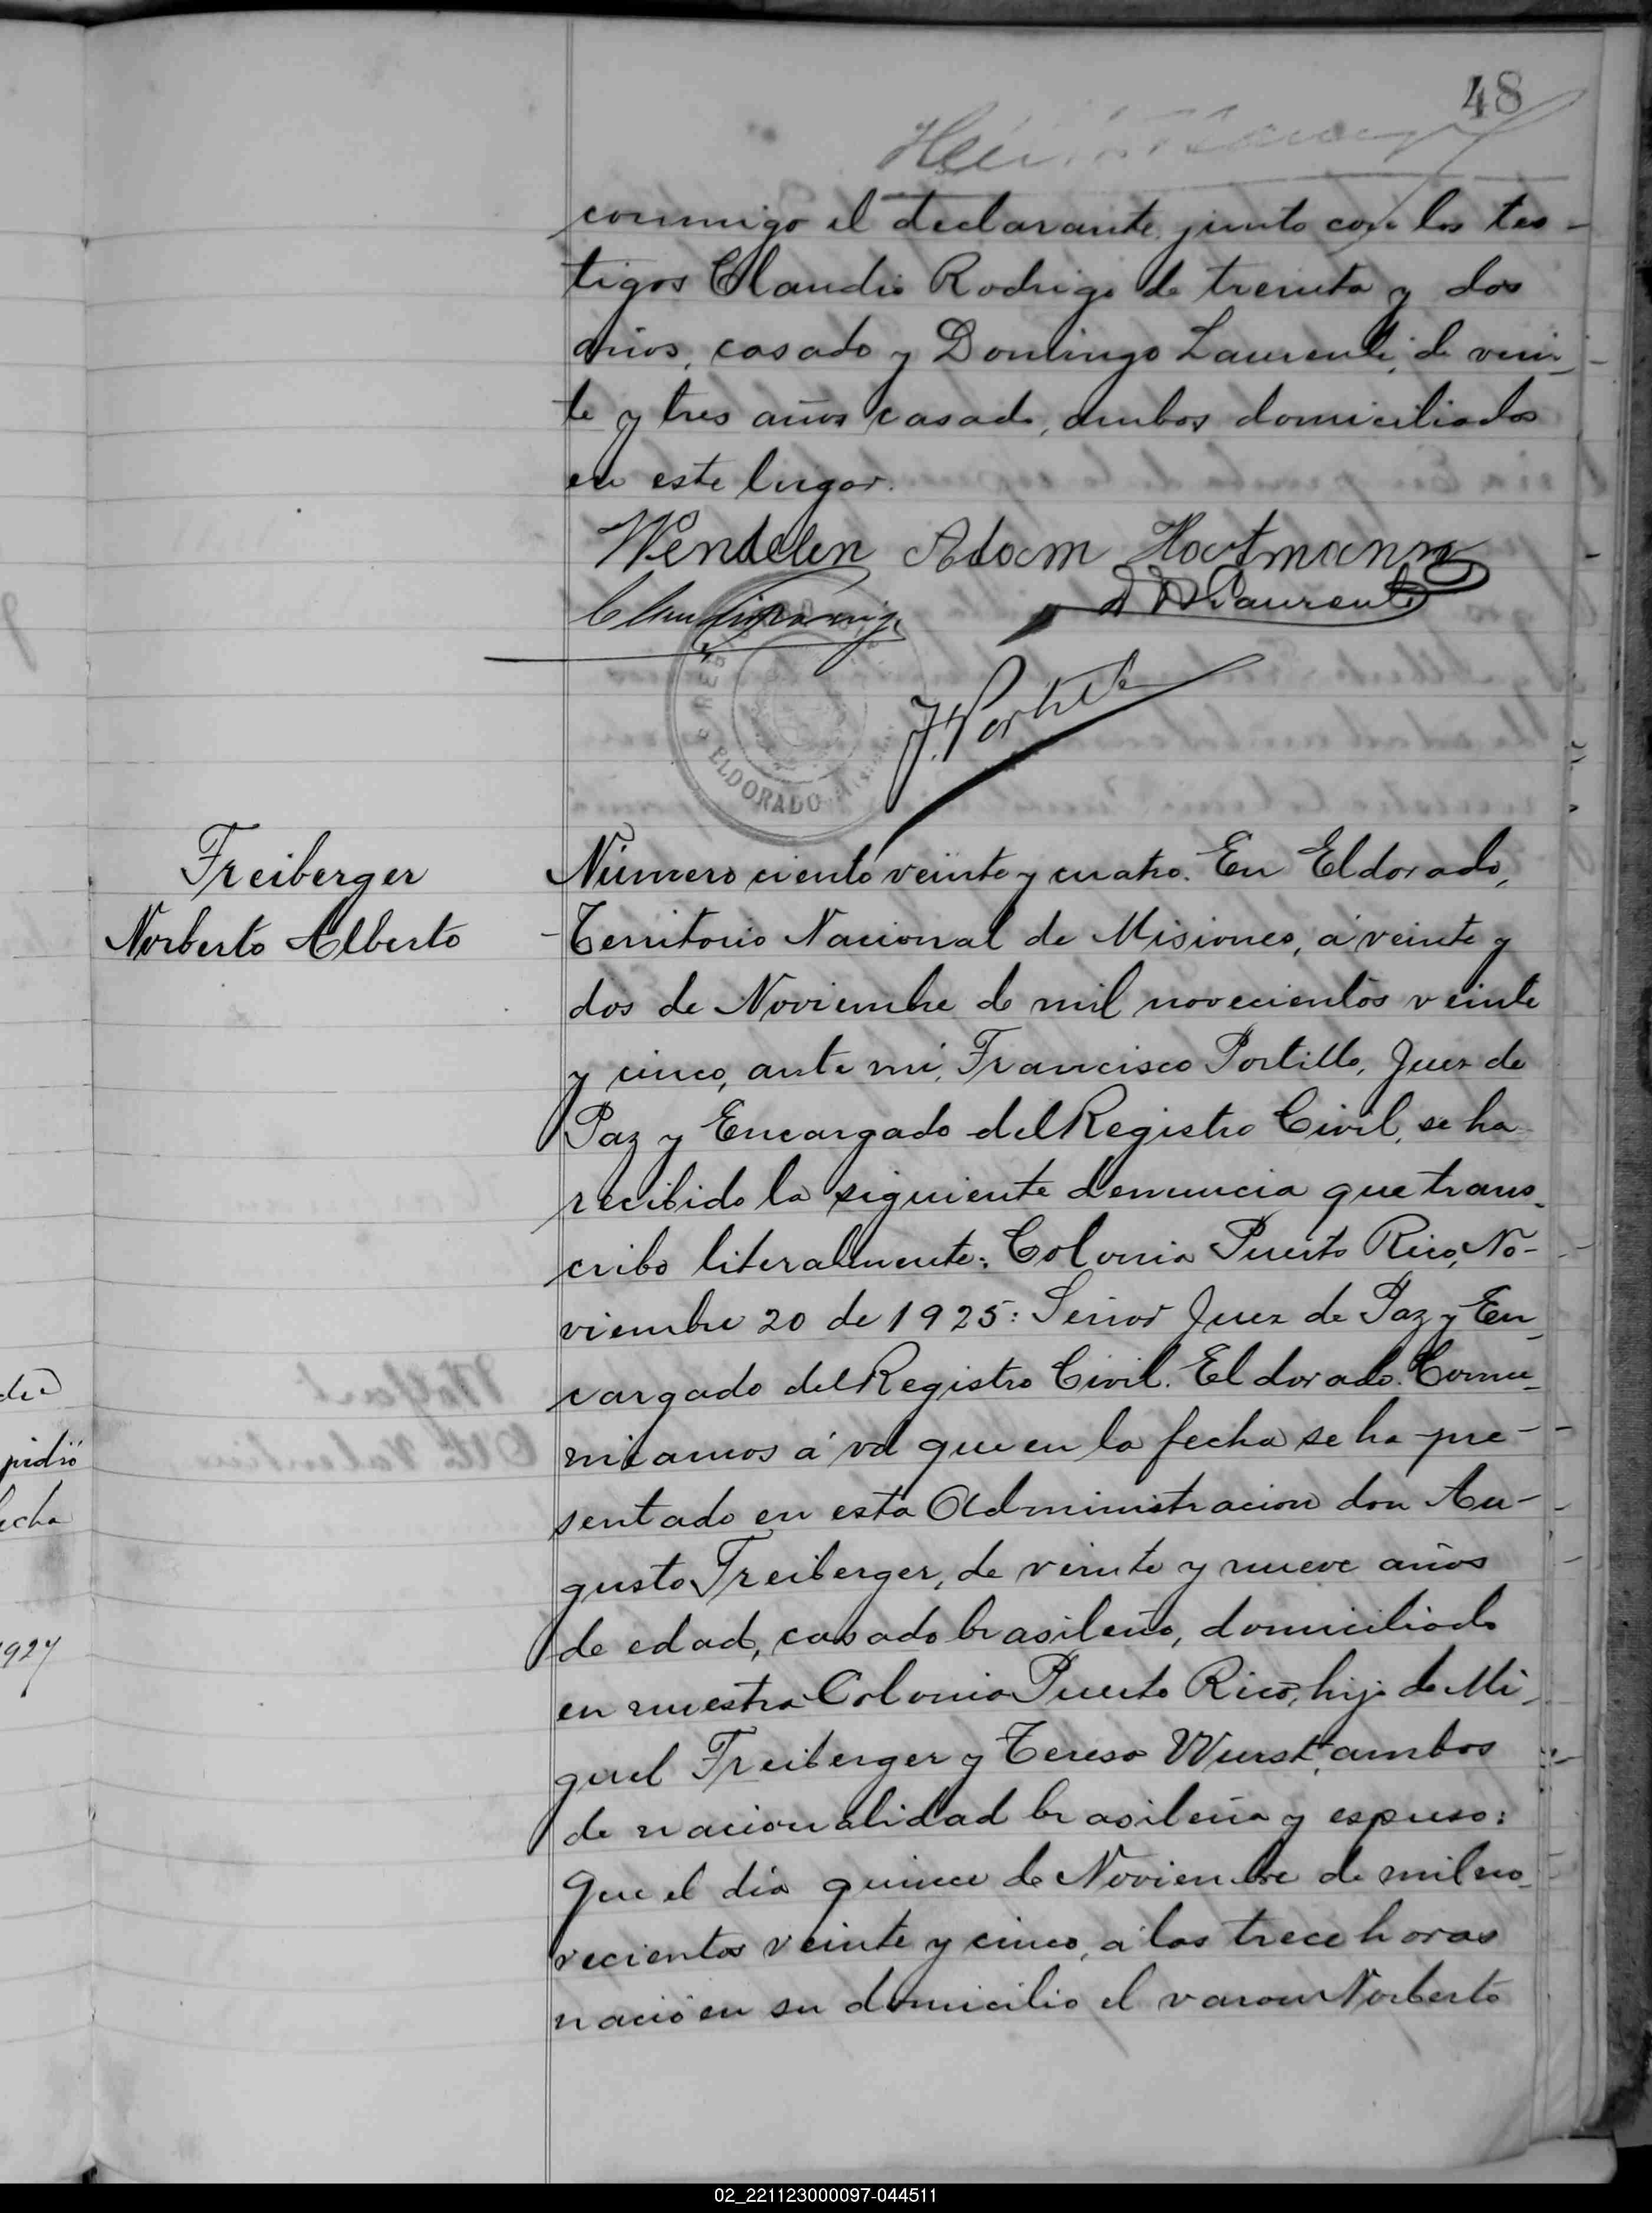 48
conmigo el declarante junto con los tes-
tigos Claudio Rodrigo de treinta y dos
años, casado y Domingo Laurenti, de vein-
te y tres años casado, ambos domiciliados
en este lugar.
Wendelen Adam Hartmann
D Laurenti
J. Portillo
ELDORADO
Freiberger
Norberto Alberto
Número ciento veinte y cuatro. En Eldorado,
Territorio Nacional de Misiones, á veinte y
dos de Noviembre de mil novecientos veinte
y cinco, ante mi, Francisco Portillo, Juez de
Paz y Encargado del Registro Civil, se ha
recibido la siguiente denuncia que trans-
cribo literalmente: Colonia Puerto Rico, No-
viembre 20 de 1925: Senor Juez de Paz y En-
cargado del Registro Civil. Eldorado. Comu-
nicamos á vd que en la fecha se ha pre-
sentado en esta Administracion don Au-
gusto Freiberger, de veinte y nueve años
de edad, casado brasileño, domiciliado
en nuestra Colonia Puerto Rico, hijo de Mi-
guel Freiberger y Teresa Wurst, ambos
de nacionalidad brasileña y espuso:
Que el dia quince de Noviembre de mil no-
vecientos veinte y cinco, á las trece horas
nació en su domicilio el varon Norberto
pidió
echa
02_221123000097-044511